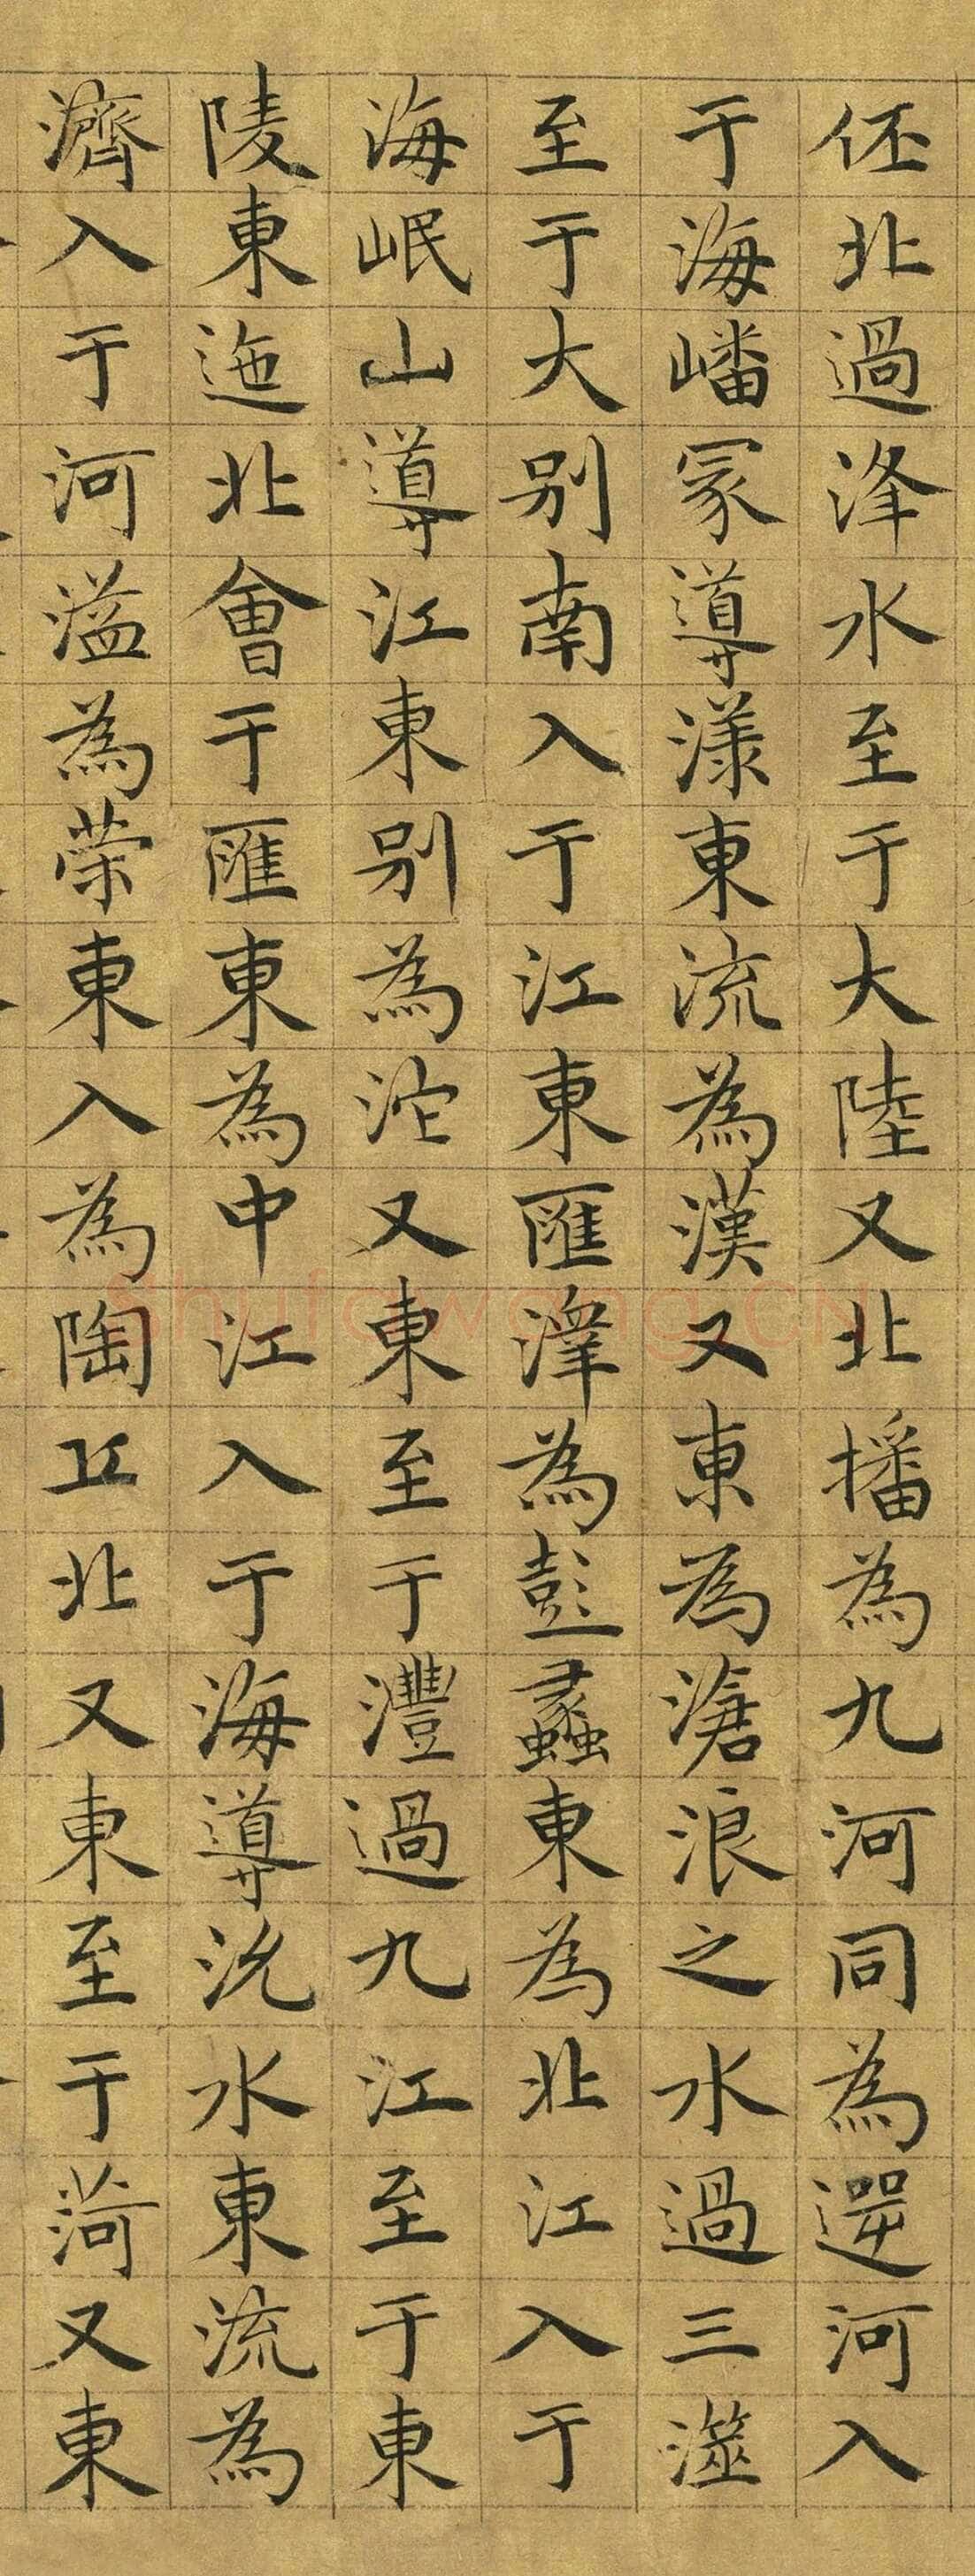 伾北過洚水至于大陸又北播為九河同為遻河入
于海嶓冢導漾東流為漢又東為滄浪之水過三澨
至于大别南入于江東匯澤為彭蠡東為北江入于
海岷山導江東别為沱又東至于澧過九江至于東
陵東迤北會于匯東為中江入于海導沇水東流為
濟入于河溢為荣東入為陶丘北又東至于菏又東
Shufawang.CN